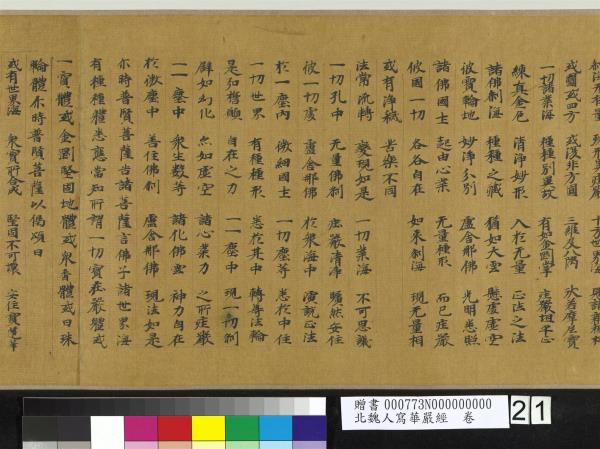 或圓或四方　或復非方圓　三維及八隅　狀若摩尼寶
一切諸業海　種種別異故　有如金剛掌　莊嚴坦平正
練真金色　清淨妙形　入於无量　正法之法
諸佛剎海　種種之藏　猶如大雲　懸處虛空
彼寶輪地　妙淨分別　盧舍那佛　光明悉照
諸佛國土　起由心業　无量種形　而已莊嚴
彼國一切　各各自在　如來剎海　現无量相
或有淨穢　苦樂不同
法常流轉　變現如是　一切業海　不可思議
一切孔中　无量佛剎　莊嚴清淨　曠然安住
彼一切處　盧舍那佛　於衆海中　演說正法
於一塵內　微細國土　一切塵等　悉於中住
一切世界　有種種形　悉於其中　轉尊法輪
是知誓願　自在之力　一一塵中　現一切剎
譬如幻化　亦如虛空　諸心業力　之所莊嚴
一一塵中　衆生數等　諸化佛雲　神力自在
於微塵中　善住佛剎　盧舍那佛　現法如是
尒時普賢菩薩告諸菩薩言佛子諸世界海
有種種體悉應當知所謂一切寶莊嚴體或
一寶體或金剛堅固地體或衆香體或日珠
輪體尒時普賢菩薩以偈頌曰
或有世界海　衆寶所合成　堅固不可壞　安住寶蓮華
贈書 000773N000000000
北魏人寫華嚴經　卷
21